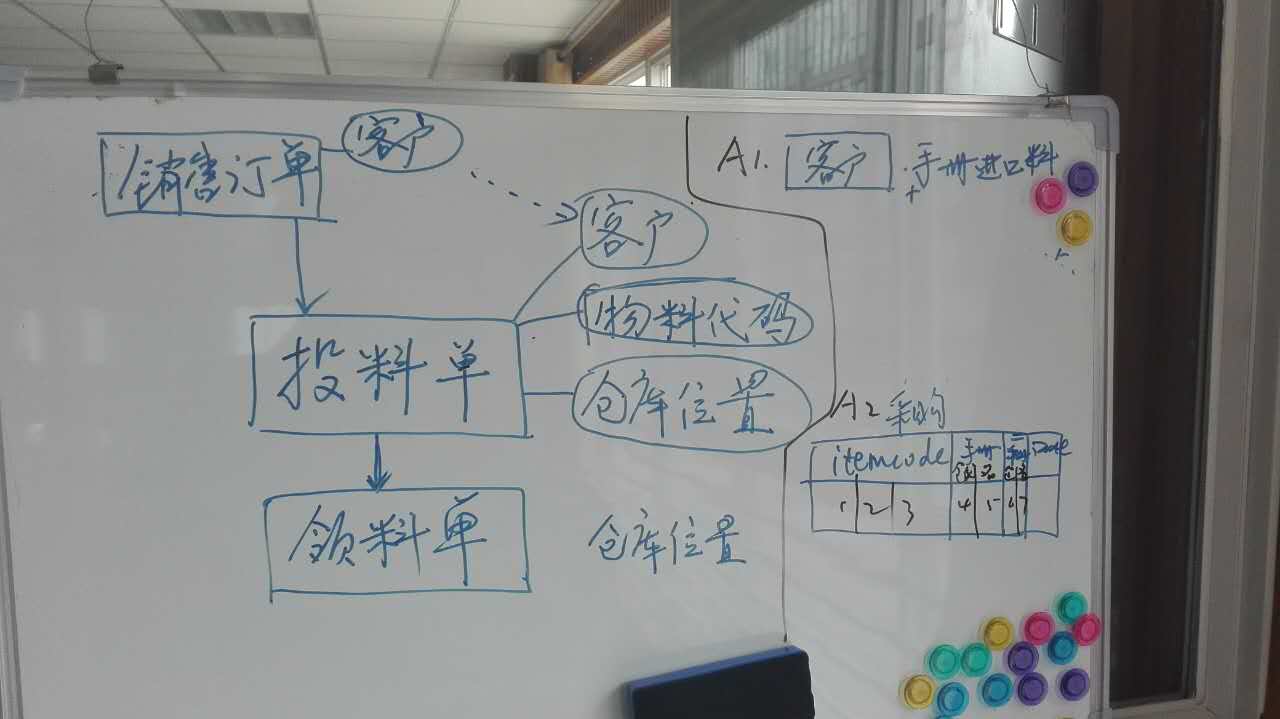 销售订单 客户
客户
物料代码
投料单
仓库位置
领料单 仓库位置
A1. 客户 手册进口料
+
A2 采购
itemcode 手册
1 2 3 4 5 6 7